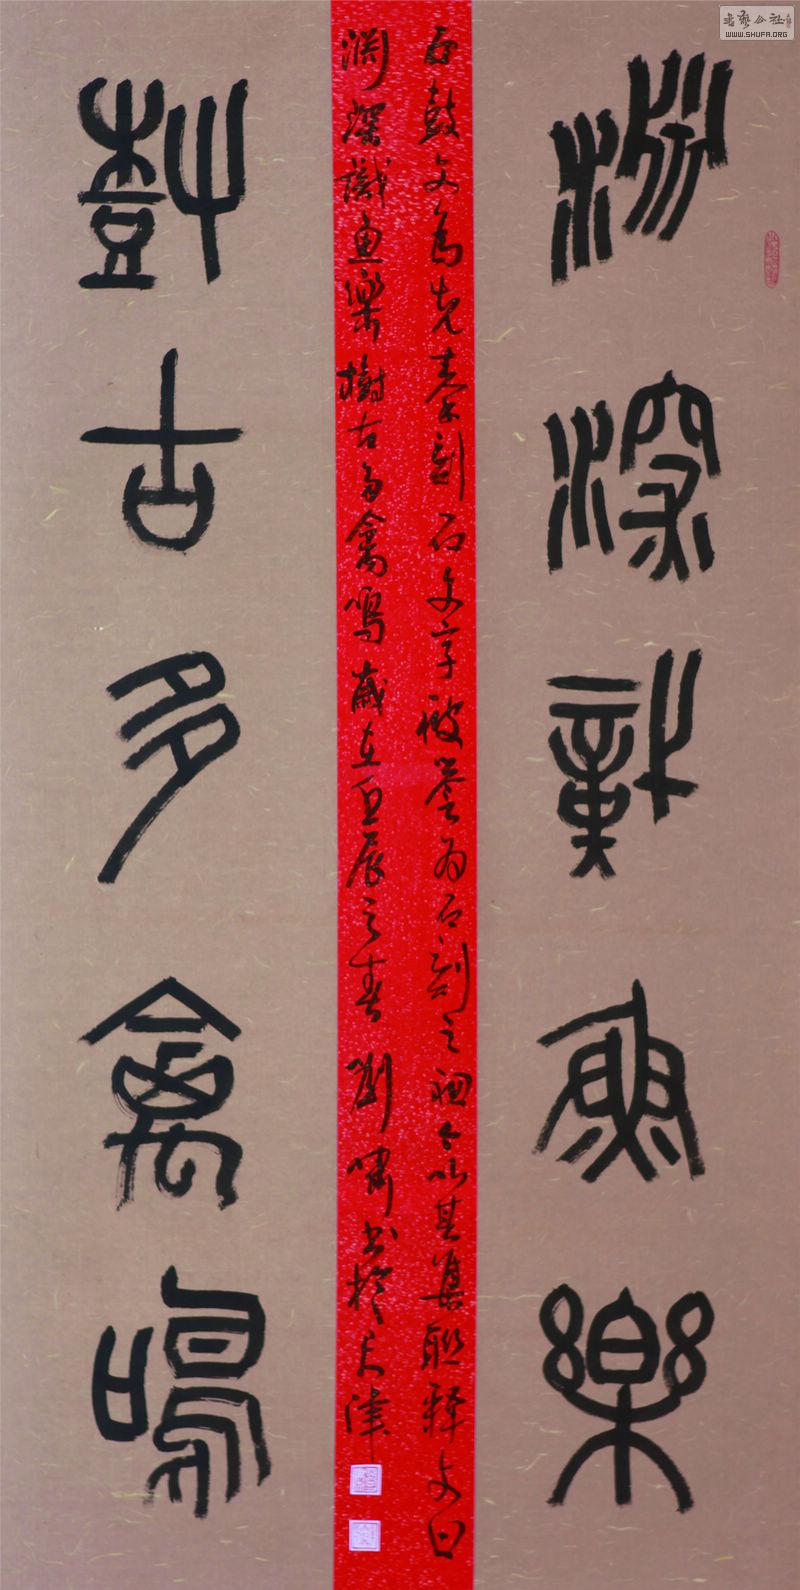 書藝公社
WWW.SHUFA.ORG
淵深識魚樂
石鼓文為先秦刻石文字被誉为石刻之祖今以其集联释文曰
淵深識魚樂樹古多禽鳴歲在壬辰之春劉嘯书於天津
樹古多禽鳴